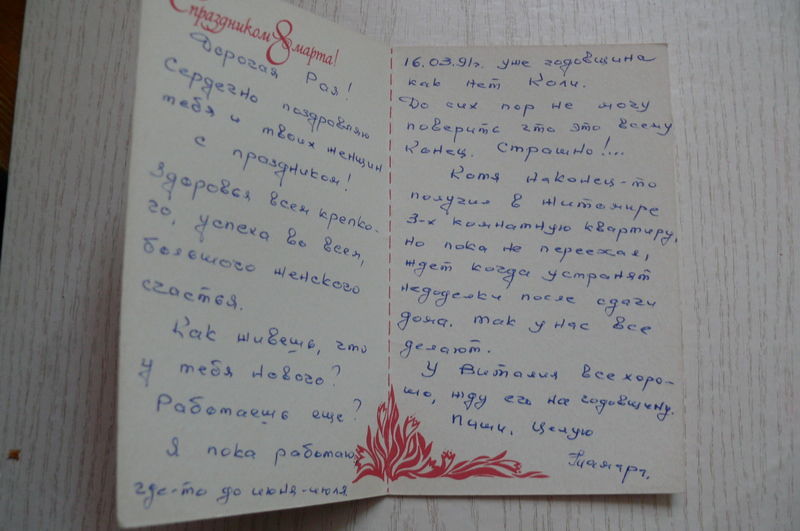 С праздником 8 марта!
Дорогая Рая!
Сердечно поздравляю
тебя и твоих женщин
с праздником!
Здоровья всем крепко-
го, успеха во всем,
большого женского
счастья.
Как живешь, что
у тебя нового?
Работаешь еще?
Я пока работаю
где-то до июня-июля
16.03.91г. уже годовщина
как нет Коли.
До сих пор не могу
поверить что это всему
конец. Страшно!...
Котя наконец-то
получил в Житомире
3-х комнатную квартиру,
но пока не переехал,
ждет когда устранят
недоделки после сдачи
дома. Так у нас все
делают.
У Виталия все хоро-
шо, жду его на годовщину.
Пиши. Целую